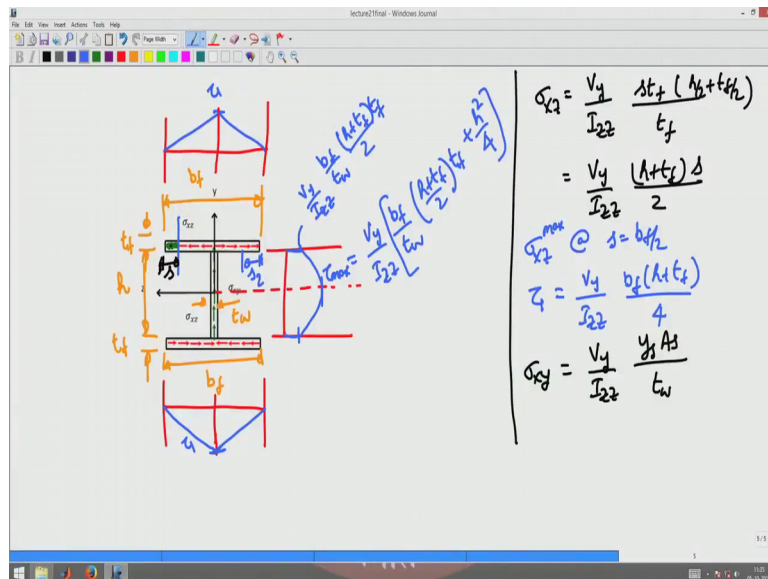 lecture21final - Windows Journal
File Edit View Insert Actions Tools Help
Page Width
B I
τ₁
b_f
y
σ_xz
t_f
s
s₂
h
z
σ_xz
t_w
t_f
b_f
τ₁
V_y/I_zz b_f/t_w (h+t_f)/2 t_f
τ_max = V_y/I_zz [b_f/t_w ((h+t_f)/2) t_f + h²/4]
σ_xz = V_y/I_zz st_f (h/2+t_f/2)/t_f
= V_y/I_zz (h+t_f) s/2
σ_xz^max @ s = b_f/2
τ₁ = V_y/I_zz b_f(h+t_f)/4
σ_xy = V_y/I_zz y_s A_s/t_w
5/5
5
11:23